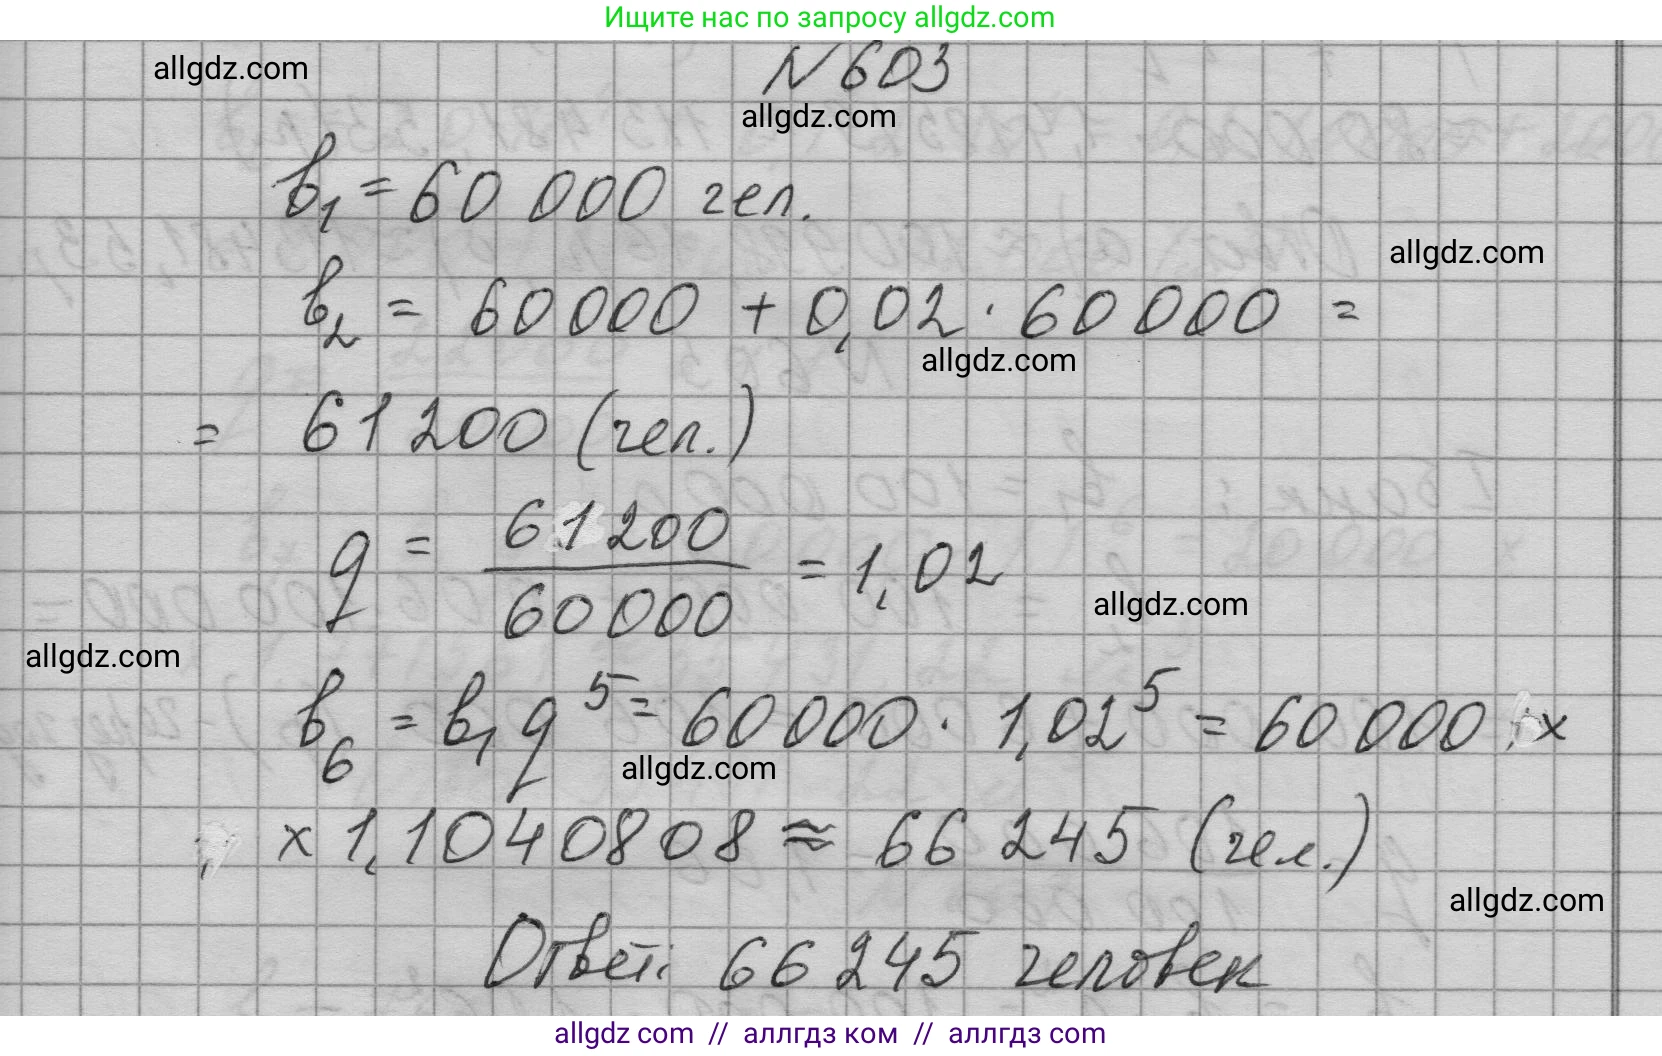 Ищите нас по запросу allgdz.com
N 603
allgdz.com
allgdz.com
b₁ = 60 000 чел.
allgdz.com
b₂ = 60000 + 0,02 · 60 000 =
allgdz.com
= 61 200 (чел.)
q = 61 200 / 60 000 = 1,02
allgdz.com
allgdz.com
b₆ = b₁ q⁵ = 60 000 · 1,02⁵ = 60 000 ×
allgdz.com
× 1,1040808 ≈ 66 245 (чел.)
allgdz.com
Ответ: 66 245 человек
allgdz.com // аллгдз ком // аллгдз com